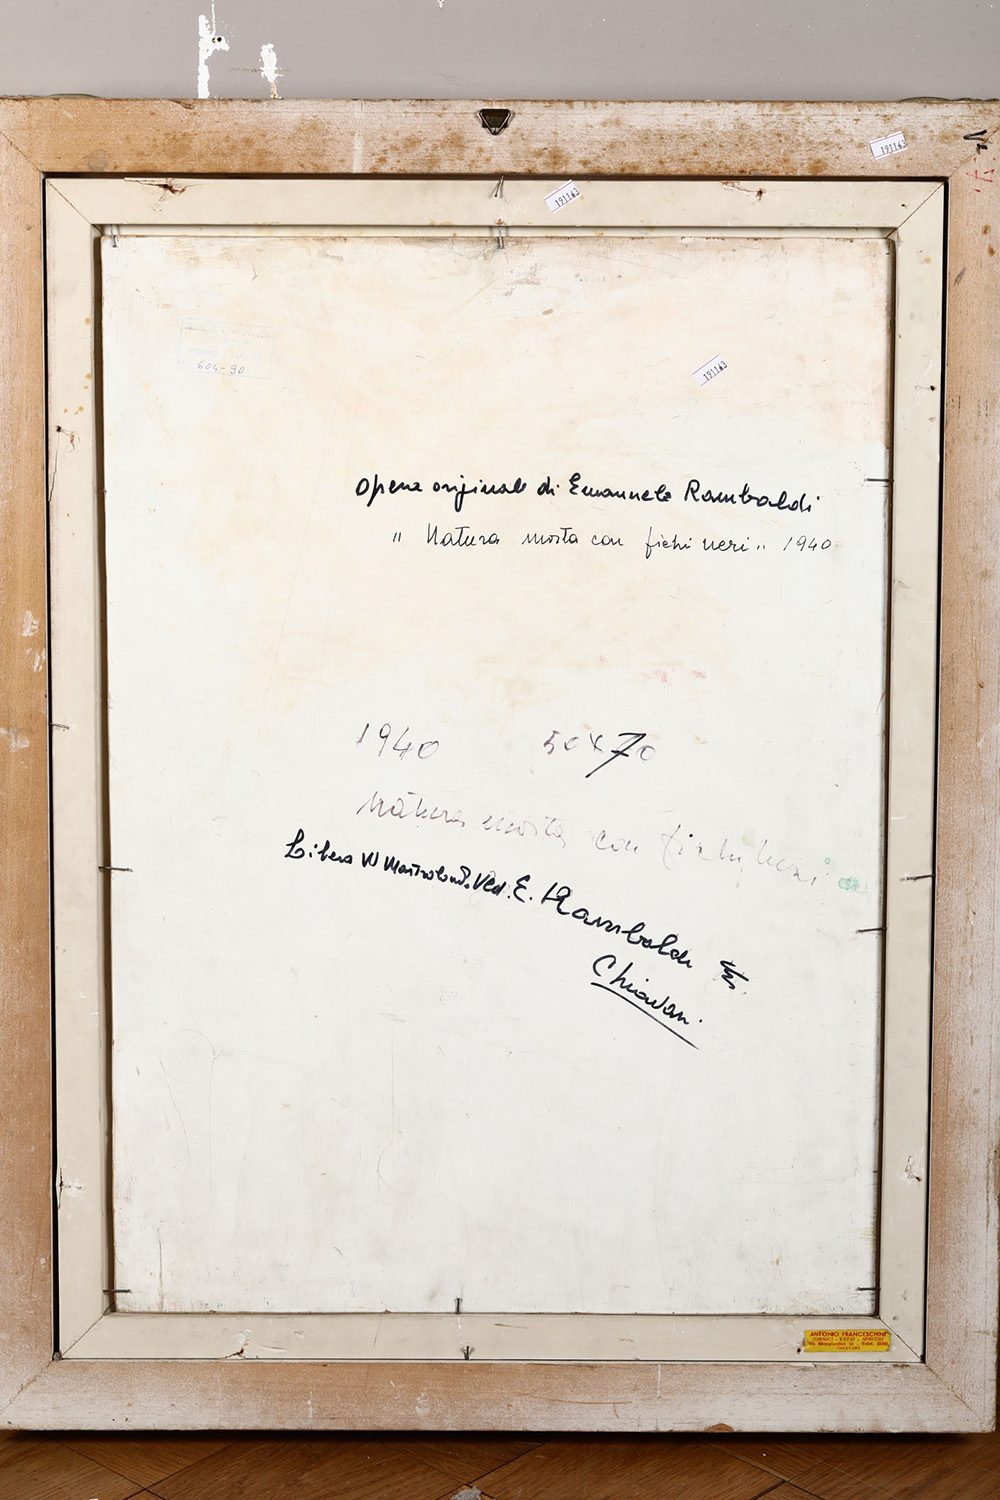 191163
191163
604-90
191163
Opera originale di Emanuele Rambaldi
"Natura morta con fichi neri" 1940
1940 50x70
Natura morta con fichi neri
Libera Ved. E. Rambaldi
Chiavari
ANTONIO FRANCESCHINI
CORNICI - SPECCHI